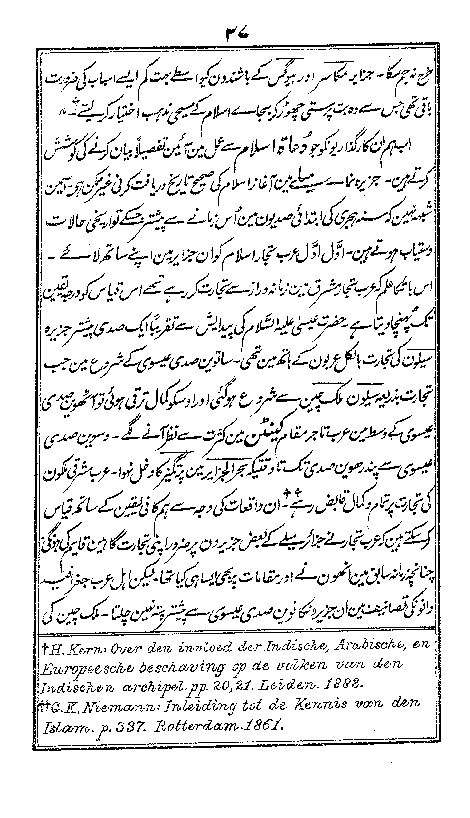 ۳۷
طرح نہ جم سکا۔ جزایر مکاسر اور ہوگس کے باشندون کیواسطے بہت کم ایسے اسباب کی ضرورت
باقی تھی جس سے وہ بت پرستی چھوڑ کر بجاے اسلام کے مسیحی مذہب اختیار کر لیتے†۔
اب ہم ان کارگذاریو نکو جو دُعاۃ اسلام سے عمل مین آئین تفصیلاً بیان کرنے کی کوشش
کرتے ہین۔ جزیرہ نماے میلے مین آغاز اسلام کی صحیح تاریخ دریافت کرنی غیر ممکن ہو۔ اسمین
شبہ نہین کہ سنہ ہجری کی ابتدائی صدیون مین اُس زمانے سے پیشتر جسکے تواریخی حالات
دستیاب ہوتے ہین۔ اوّل اوّل عرب تجار اسلام کو ان جزایر مین اپنے ساتھ لائے۔
اس بات کا علم کہ عرب تجار مشرق مین زمانہ دراز سے تجارت کر رہے تھے اس قیاس کو درجہ یقین
تک پہنچا دیتا ہے۔ حضرت عیسیٰ علیہ السّلام کی پیدایش سے تقریباً ایک صدی پیشتر جزیرہ
سیلون کی تجارت بالکل عربون کے ہاتھ مین تھی۔ ساتوین صدی عیسوی کے شروع مین جب
تجارت بذریعہ سیلون ملک چین سے شروع ہو گئی اور اوسکو کمال ترقی ہوئی تو آٹھوین صدی
عیسوی کے وسط مین عرب تاجر مقام کینٹن مین کثرت سے نظر آنے لگے۔ دسوین صدی
عیسوی سے پندرھوین صدی تک تا وقتیکہ بحر الجزایر مین پرتگیز کا دخل نہوا۔ عرب شرقی ملکون
کی تجارت پر بتمام و کمال قابض رہے††۔ ان واقعات کی وجہ سے ہم کافی یقین کے ساتھ قیاس
کر سکتے ہین کہ عرب تجار نے جزائر میلے کے بعض جزیرون پر ضرور اپنی تجارت گاہین قایم کی ہونگی
چنانچہ زمانہ سابق مین انھون نے اور مقامات پر بھی ایسا ہی کیا تھا۔ لیکن اہل عرب جغرافیہ
دانونکی تصانیف مین ان جزیرونکا نوین صدی عیسوی سے پیشتر پتہ نہین چلتا۔ ملک چین کی
†H. Kern: Over den invloed der Indische, Arabische, en
Europeesche beschaving op de volken van den
Indischen archipel. pp. 20, 21. Leiden. 1883.
††G. K. Niemann: Inleiding tot de Kennis van den
Islam. p. 337. Rotterdam. 1861.